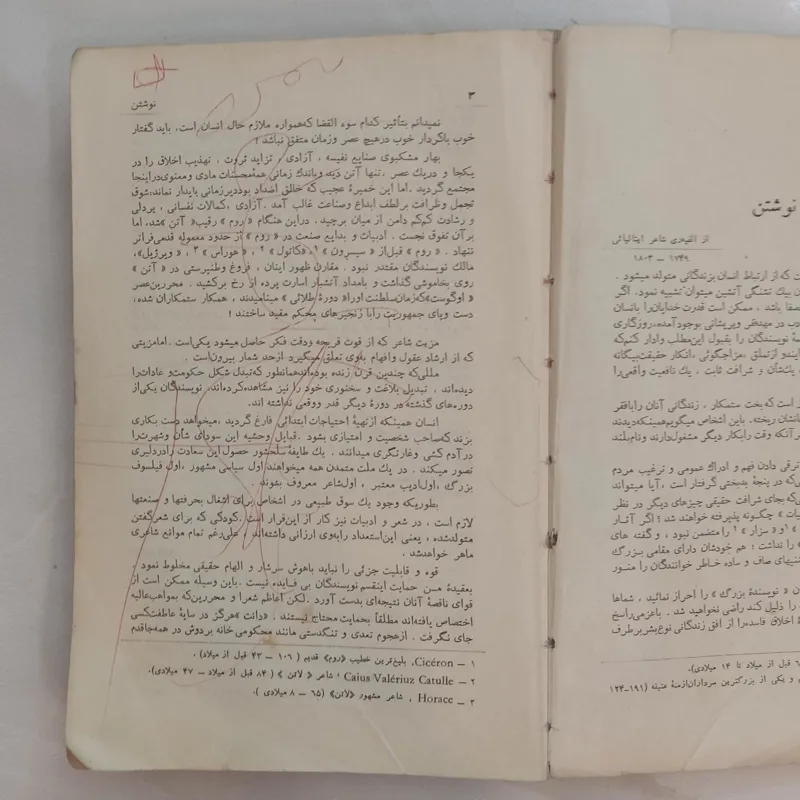 نوشتن
از الفیه‌ری شاعر ایتالیائی
۱۷۴۹ – ۱۸۰۳
ت که از ارتباط انسان بزندگانی متولد میشود .
ن بیك تشنگی آتشین میتوان تشبیه نمود. اگر
صفا باشد ، ممکن است قدرت خدایان‌را بانسان
دب در مهدفقر وپریشانی بوجود‌آمده، روزگاری
ۀ نویسندگان را بقبول این‌مطلب وادار کنم‌که
ایندو از‌تملق ، مزاجگوئی ، انکار حقیقت‌بیگانه
یك‌شأن و شرافت ثابت ، یك نافعیت واقعی‌را
ر است که‌بخت ستمکار ، زندگانی آنان را‌بافقر
انشان ریخته. باین اشخاص میگویم‌همینکه‌دیدند
ر آنکه وقت را‌بکار دیگر مشغول‌دارند ونام‌بلند
ترقی دادن فهم و ادراك عمومی و ترغیب مردم
ی‌که در پنجۀ بدبختی گرفتار است ، آیا میتواند
ی‌که بجای شرافت حقیقی چیزهای دیگر در نظر
یات » چگونه پذیرفته خواهند شد ؛ اگر آثار
» ۱ و « سزار » ۱ را متضمن نبود ، و گفته های
» را نداشت ؛ هم خودشان دارای مقامی بزرگ
نیهای صاف و ساده خاطر خوانندگان را منور
ن « نویسندۀ بزرگ » را احراز نمائید ، شماها
را ذلیل کند راضی نخواهید شد . باعزمی‌راسخ
ۀ اخلاق فاسده‌را از افق زندگانی نوع‌بشر‌برطرف
قبل از میلاد تا ۱۴ میلادی).
ی و یکی از بزرگترین سرداران‌ازمنۀ عتیقه (۱۹۱–۱۲۴
۳
نوشتن
نمیدانم بتأثیر کدام سوء القضا که‌همواره ملازم حال انسان است، باید گفتار
خوب باکردار خوب در‌هیچ عصر وزمان متفق نباشد !
بهار مشکبوی صنایع نفیسه ، آزادی ، تزاید ثروت ، تهذیب اخلاق را در
یکجا و در‌یك عصر ، تنها آتن دید وباندك زمانی همۀ‌محسنات مادی ومعنوی‌در‌اینجا
مجتمع گردید . اما این خمیرۀ عجیب که خالق اضداد بود‌دیر‌زمانی پایدار نماند، شوق
تجمل وظرافت بر‌لطف ابداع وصناعت غالب آمد . آزادی ، کمالات نفسانی ، پردلی
و رشادت کم‌کم دامن از میان برچید . در‌این هنگام « روم » رقیب « آتن » شد، اما
بر‌آن تفوق نجست . ادبیات و بدایع صنعت در « روم » از حدود معموله قدمی‌فراتر
ننهاد . « روم » قبل‌از « سیسرون » ۱ ، « کاتول » ۲ ، « هوراس » ۳ ، « ویرژیل » ،
مالك نویسندگان مقتدر نبود . مقارن ظهور اینان ، فروغ وطنپرستی در « آتن »
روی بخاموشی گذاشت و بامداد آتشبار اسارت پرده از رخ برکشید . محررین‌عصر
« اوگوست » که‌زمان‌سلطنت اورا « دورۀ طلائی » مینامیدند ، همکار ستمکاران شده،
دست وپای جمهوریت رابا زنجیرهای محکم مقید ساختند !
مزیت شاعر که از قوت قریحه ودقت فکر حاصل میشود یکی‌است. اما‌مزیتی
که از ارشاد عقول وافهام بوی تعلق میگیرد از‌حد شمار بیرون‌است .
مللی‌که چندین قرن زنده بوده‌اند‌همانطور که‌تبدل شکل حکومت‌و عادات‌را
دیده‌اند ، تبدیل بلاغت و سخنوری خود را نیز مشاهده‌کرده‌اند. نویسندگان یکی‌از
دوره‌های گذشته در دورۀ دیگر قدر ووقعی نداشته اند.
انسان همینکه از‌تهیۀ احتیاجات ابتدائی فارغ گردید ، میخواهد دست بکاری
بزند که‌صاحب شخصیت و امتیازی بشود . قبایل وحشیه این سودای شأن وشهرت‌را
در‌آدم کشی وغارتگری میدانند . یك طایفۀ سلحشور حصول این سعادت را‌در‌دلیری
تصور میکند . در یك ملت متمدن همه میخواهند اول سیاسی مشهور ، اول فیلسوف
بزرگ ، اول‌ادیب معتبر ، اول‌شاعر معروف بشوند .
بطوریکه وجود یك سوق طبیعی در اشخاص برای اشغال بحرفتها و صنعتها
لازم است ، در شعر و ادبیات نیز کار از این‌قرار است. کودکی که برای شعر‌گفتن
متولدشده ، یعنی این‌استعداد را‌بوی ارزانی داشته‌اند ، علی‌رغم تمام موانع شاعری
ماهر خواهد‌شد .
قوه و قابلیت جزئی را نباید باهوش سرشار و الهام حقیقی مخلوط نمود .
بعقیدۀ من حمایت اینقسم نویسندگان بی فایده نیست . باین وسیله ممکن است از
قوای ناقصۀ آنان نتیجه‌ای بدست آورد . لکن اعاظم شعرا و محررین‌که بمواهب‌عالیه
اختصاص یافته‌اند مطلقاً بحمایت محتاج نیستند . « دانت » هرگز در سایۀ عاطفت‌کسی
جای نگرفت . از‌هجوم تعدی و تنگدستی مانند محکومی خانه بر‌دوش در همه‌جا‌قدم
۱ – Cicéron، بلیغ‌ترین خطیب « روم » قدیم ( ۱۰۶ – ۴۳ قبل از میلاد) .
۲ – Caius Valériuz Catulle ؛ شاعر « لاتن » ( ۸۴ قبل از میلاد – ۴۷ میلادی).
۳ – Horace ، شاعر مشهور « لاتن » ( ۶۵ – ۸ میلادی ).